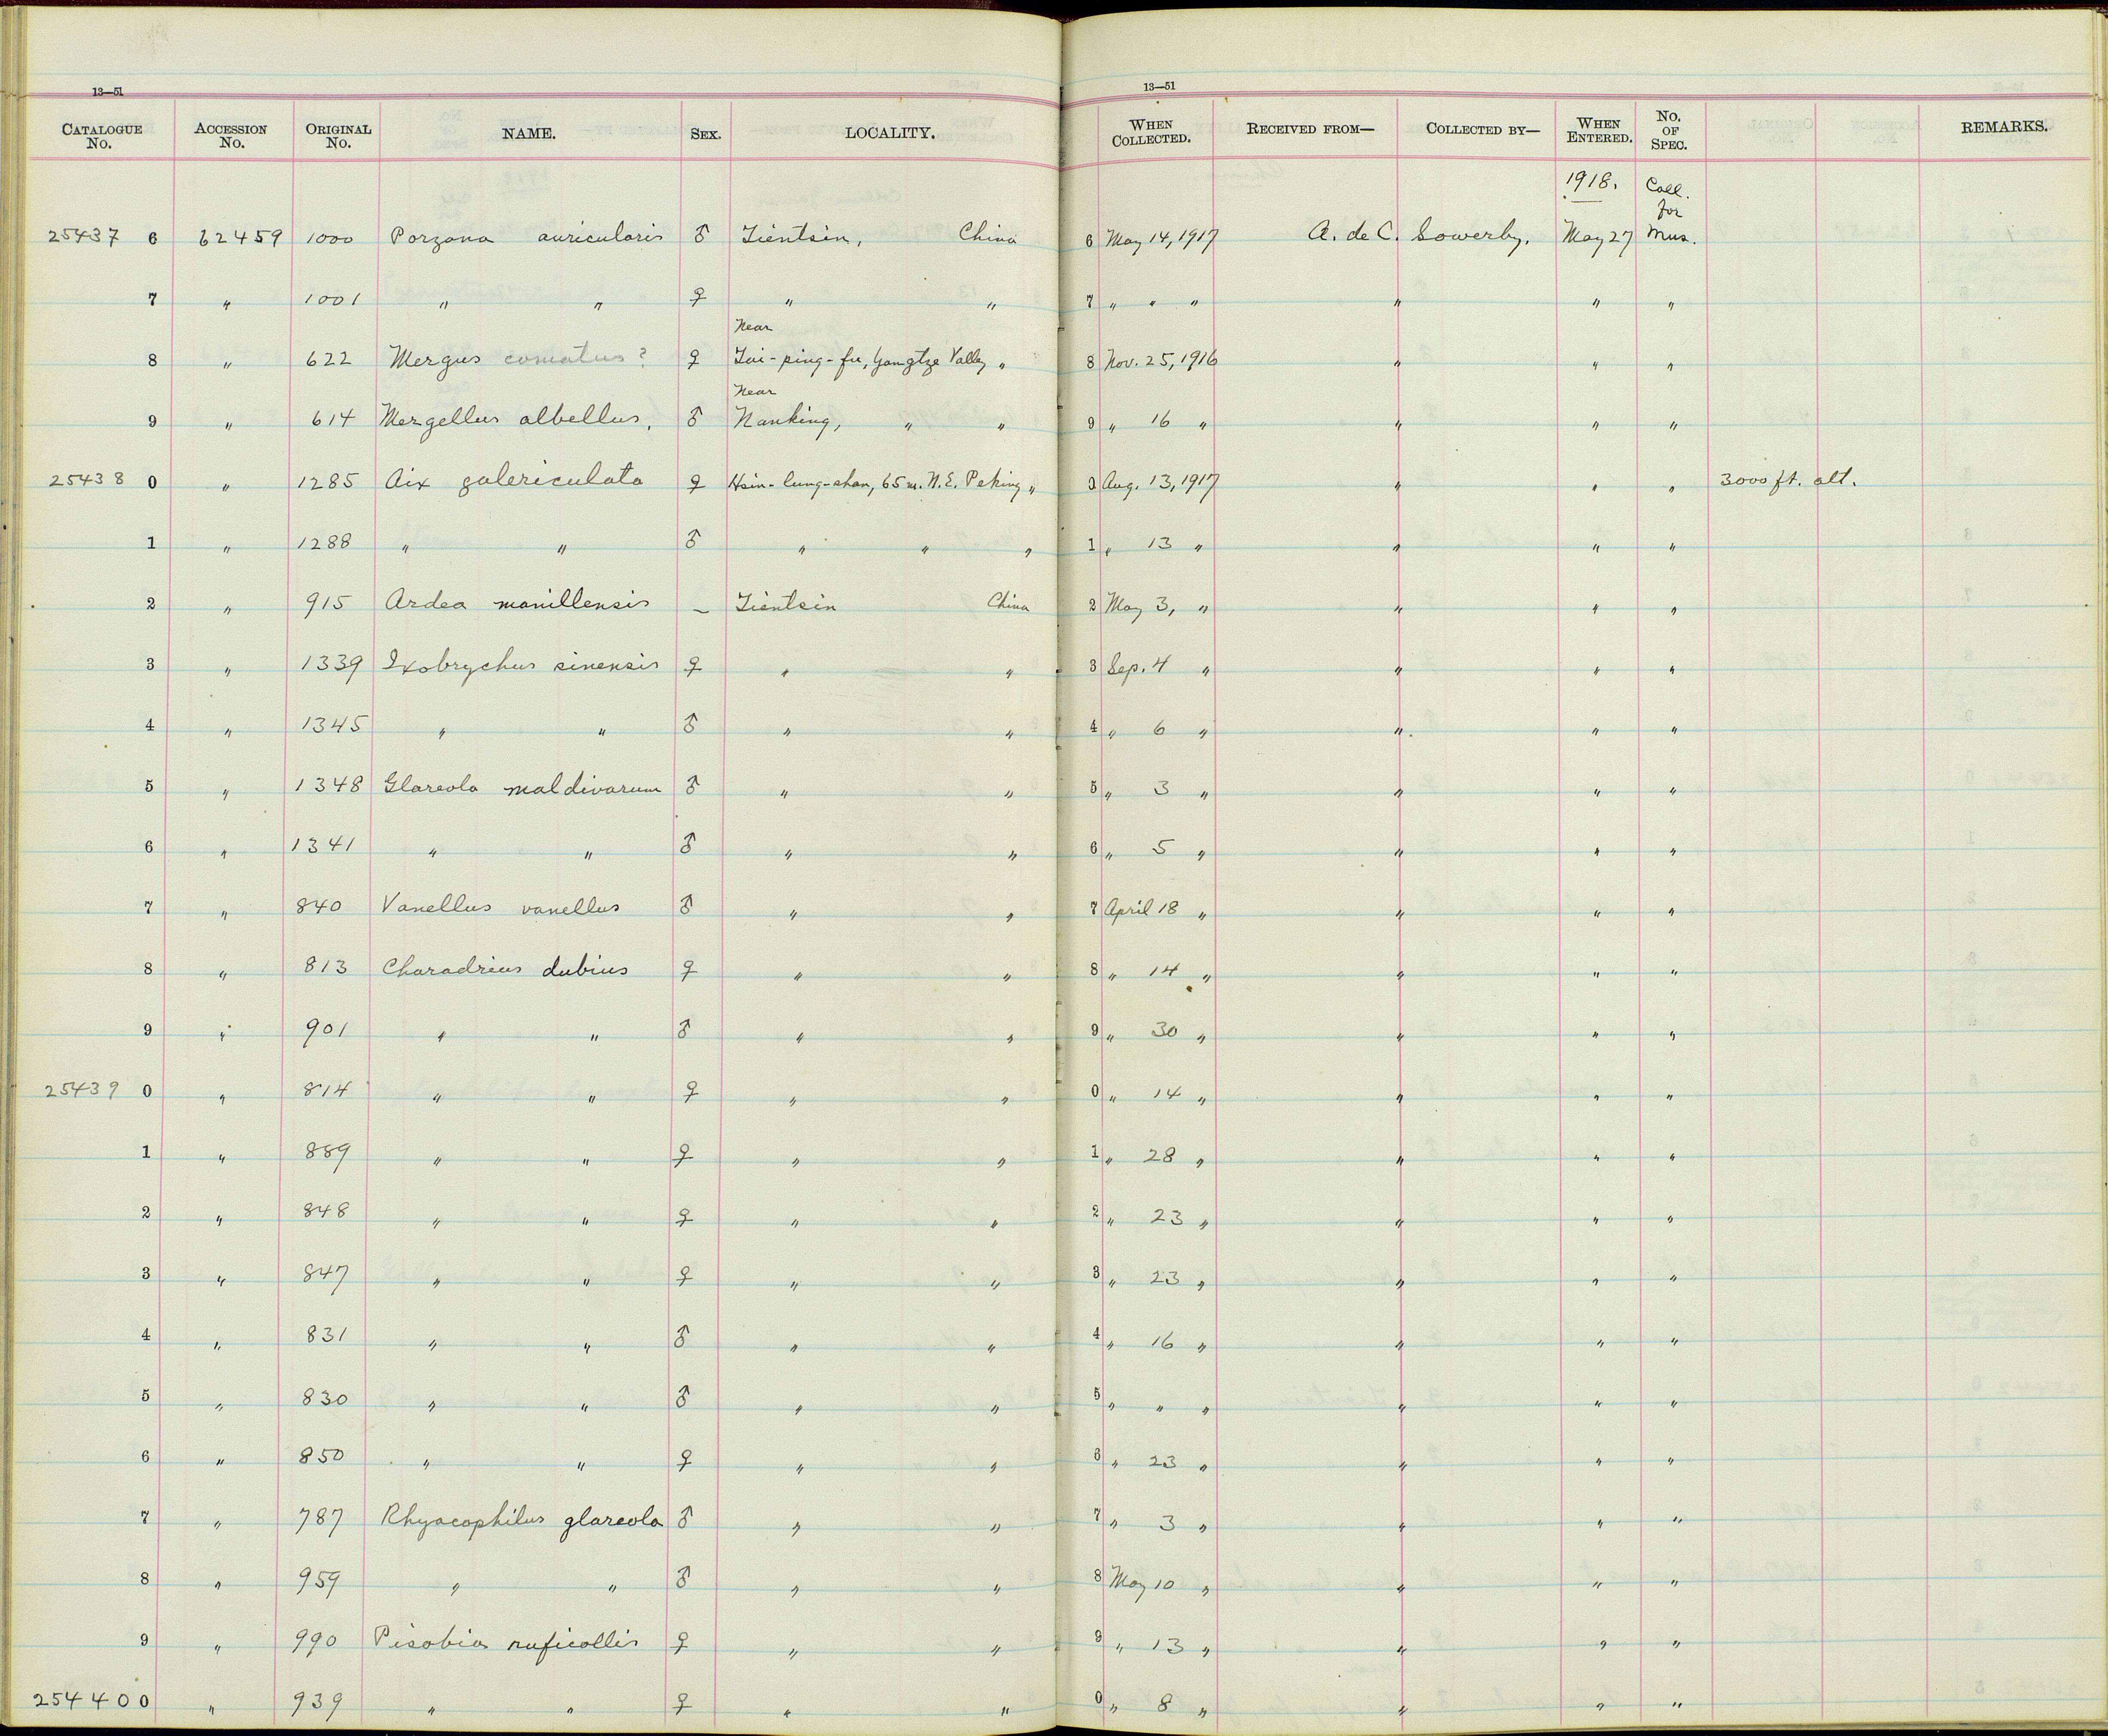 13—51 13—51
CATALOGUE No. ACCESSION No. ORIGINAL No. NAME. SEX. LOCALITY. WHEN COLLECTED. RECEIVED FROM— COLLECTED BY— WHEN ENTERED. No. OF SPEC. REMARKS.
1918. Coll. for
25437 6 62459 1000 Porzana auricularis ♂ Tientsin, China 6 May 14, 1917 A. de C. Sowerby. May 27 Mus.
7 " 1001 " " ♀ " " 7 " " " " " "
Near
8 " 622 Mergus comatus? ♀ Tai-ping-fu, Yangtze Valley " 8 Nov. 25, 1916 " " "
Near
9 " 614 Mergellus albellus. ♂ Nanking, " " 9 " 16 " " " "
25438 0 " 1285 Aix galericulata ♀ Hsin-lung-shan, 65 m. N.E. Peking " 0 Aug. 13, 1917 " " " 3000 ft. alt.
1 " 1288 " " ♂ " " " 1 " 13 " " " "
2 " 915 Ardea manillensis – Tientsin China 2 May 3, " " " "
3 " 1339 Ixobrychus sinensis ♀ " " 3 Sep. 4 " " " "
4 " 1345 " " ♂ " " 4 " 6 " " " "
5 " 1348 Glareola maldivarum ♂ " " 5 " 3 " " " "
6 " 1341 " " ♂ " " 6 " 5 " " " "
7 " 840 Vanellus vanellus ♂ " " 7 April 18 " " " "
8 " 813 Charadrius dubius ♀ " " 8 " 14 " " " "
9 " 901 " " ♂ " " 9 " 30 " " " "
25439 0 " 814 " " ♀ " " 0 " 14 " " " "
1 " 889 " " ♀ " " 1 " 28 " " " "
2 " 848 " " ♀ " " 2 " 23 " " " "
3 " 847 " " ♀ " " 3 " 23 " " " "
4 " 831 " " ♂ " " 4 " 16 " " " "
5 " 830 " " ♂ " " 5 " " " " " "
6 " 850 " " ♀ " " 6 " 23 " " " "
7 " 787 Rhyacophilus glareola ♂ " " 7 " 3 " " " "
8 " 959 " " ♂ " " 8 May 10 " " " "
9 " 990 Pisobia ruficollis ♀ " " 9 " 13 " " " "
25440 0 " 939 " " ♀ " " 0 " 8 " " " "